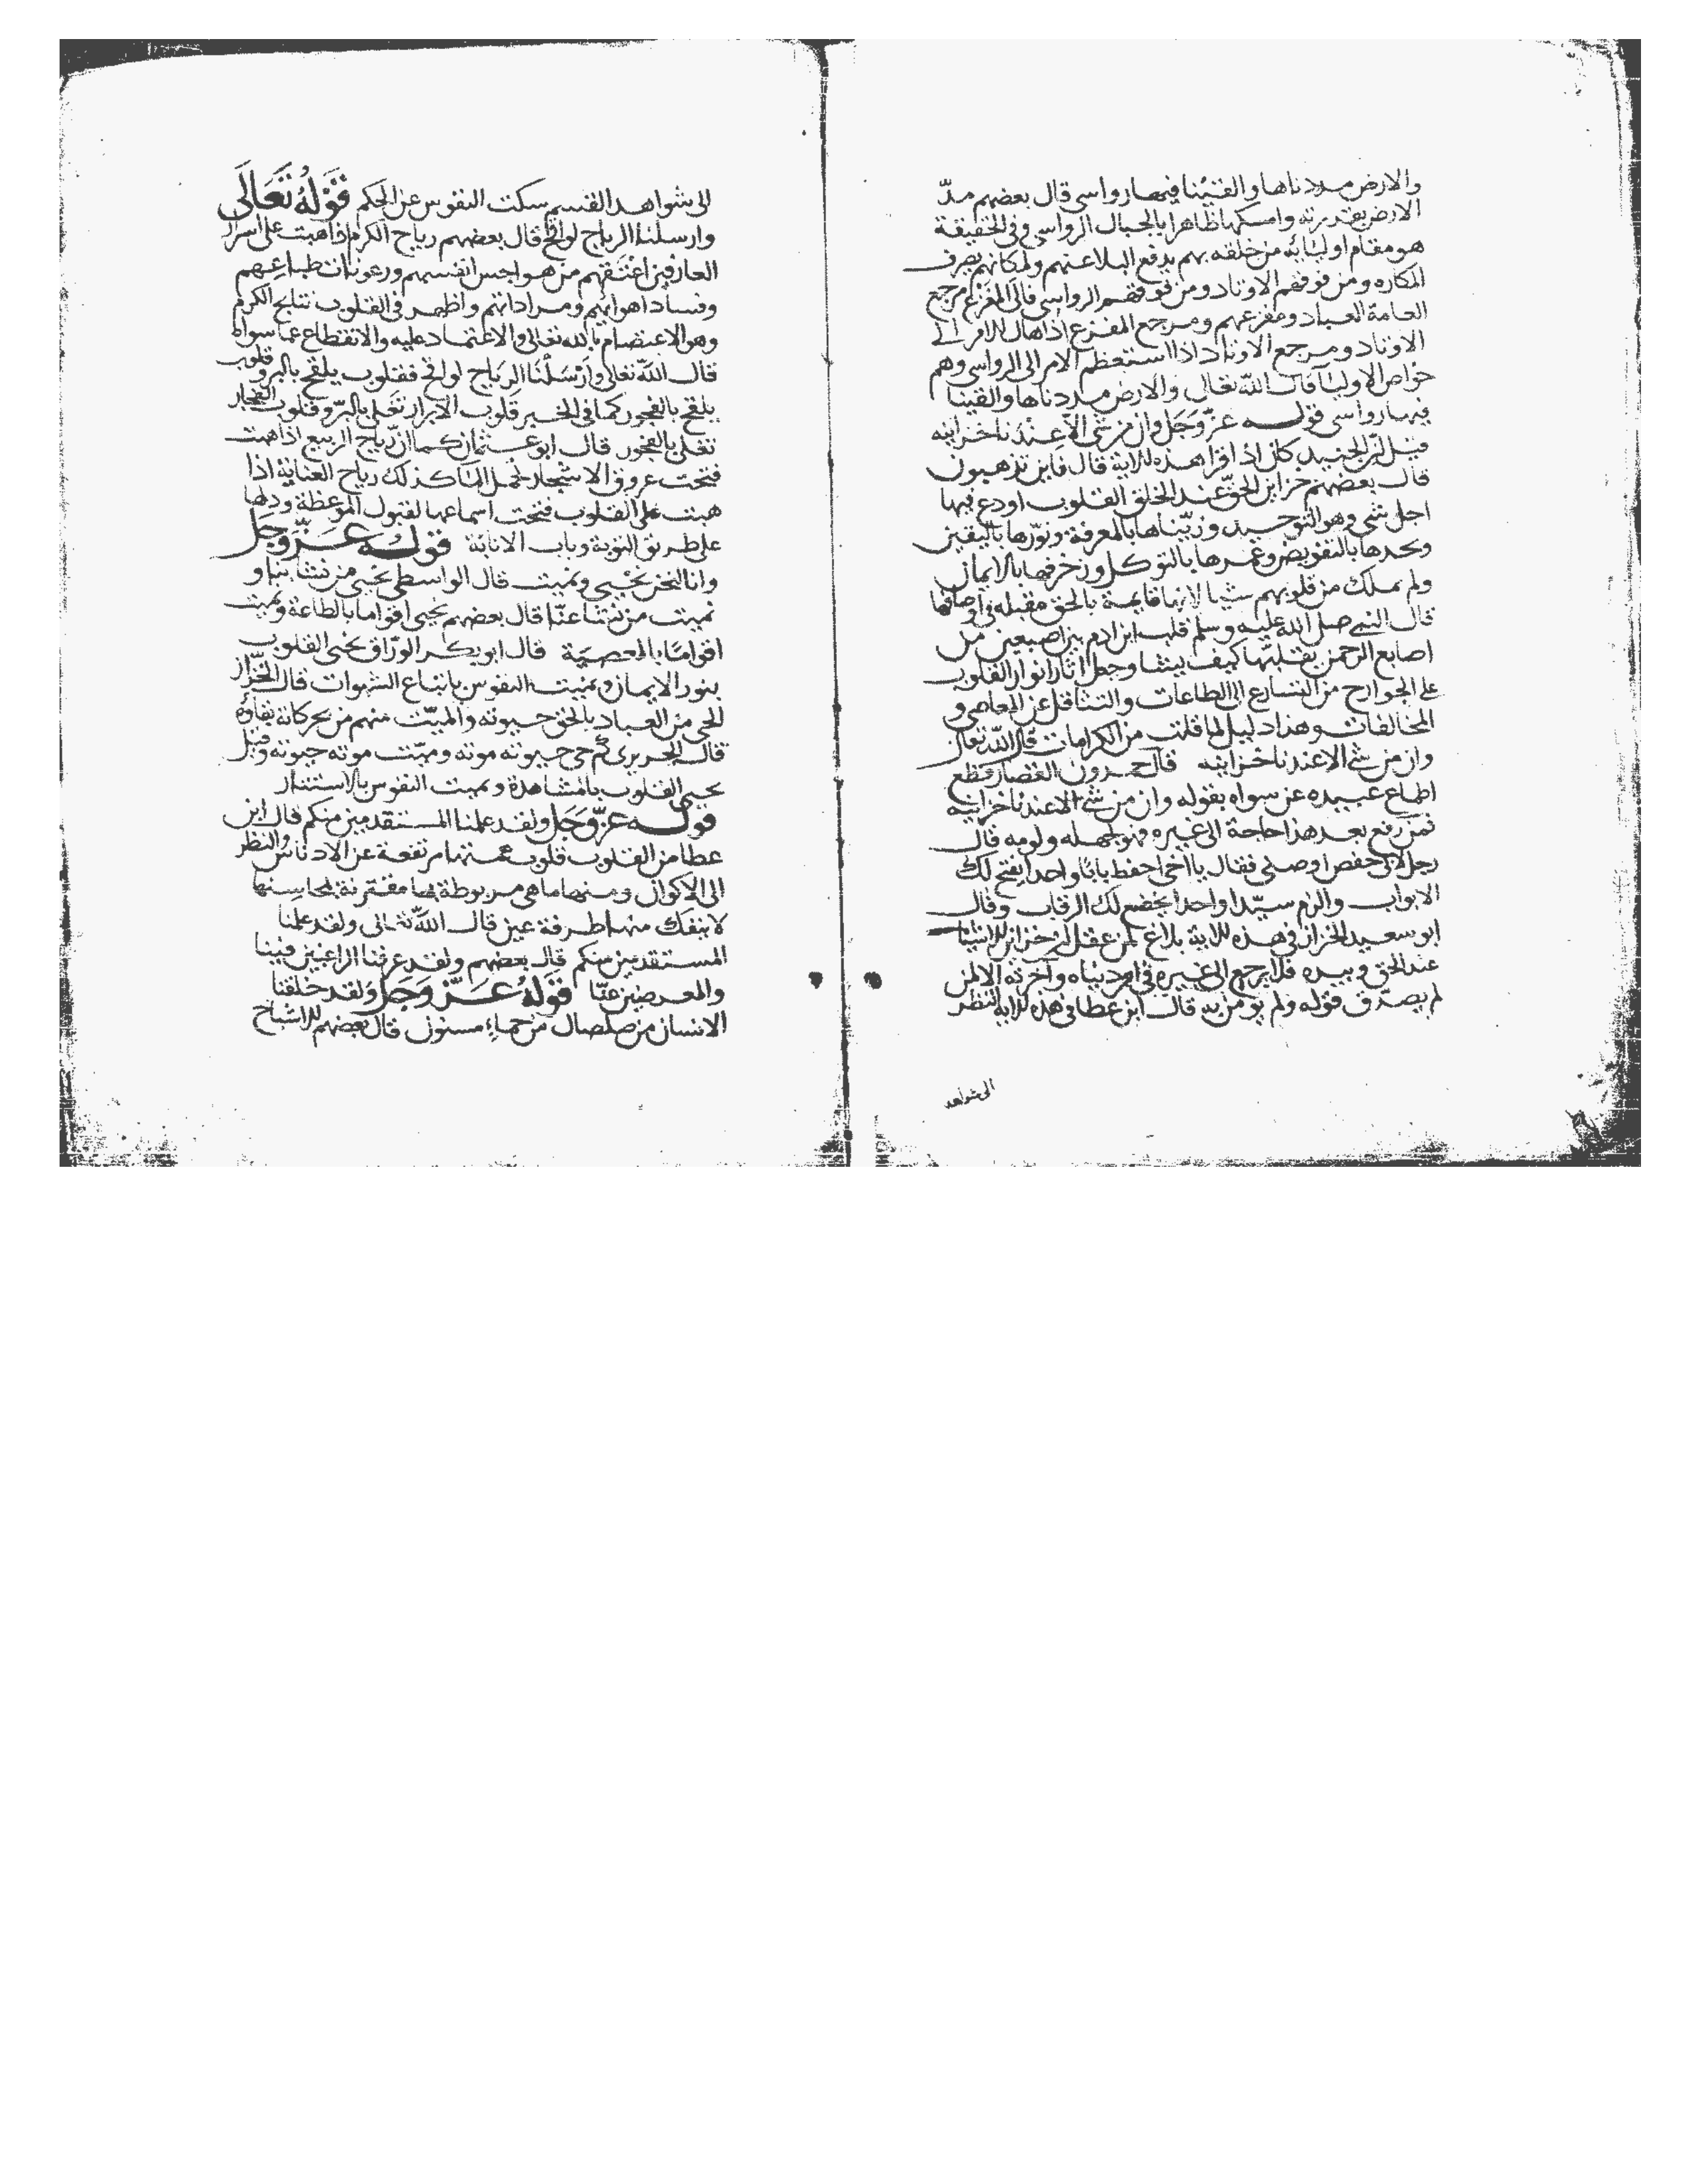 والارض مددناها والقينا فيها رواسى قال بعضهم مدّ
الارض بقدرته وامسكها ظاهرا بالجبال الرواسى وفى الحقيقة
هو مقام اوليائه من خلقه بهم يدفع البلا عنهم ولمكانهم يصرف
المكاره ومن فوقهم الاوتاد ومن فوقهم الرواسى فالى المفزع مرجع
العامة العباد ومفزعهم ومرجع المفزع اذا هال الامر الى
الاوتاد ومرجع الاوتاد اذا استعظم الامر الى الرواسى وهم
خواص الاوليآ قال الله تعالى والارض مددناها والقينا
فيها رواسى قوله عزّ وجَل وان من شى الاّ عندنا خزاينه
قيل ان الجنيد كان اذا قرا هذه الاية قال فاين تذهبون
قال بعضهم خزاين الحقّ عند الخلق القلوب اودع فيها
اجل شى وهو التوحيد وزيّناها بالمعرفة ونوّرها باليقين
بالتفويض وعمرها بالتوكل وزخرفها بالايمان
ولم يملك من قلوبهم شيا لانها قايمة بالحق مقبله فى اوصافها
قال النبى صلى الله عليه وسلم قلب ابن ادم بين اصبعين من
اصابع الرحمن يقلبها كيف يشا وجعل اثار انوار القلوب
على الجوارح من التسارع الى الطاعات والتثاقل عن المعاصى و
المخالفات وهذا دليل لما قلت من الكرامات قال الله تعالى
وان من شى الا عندنا خزاينه قال حمدون القصار قطع
اطماع عبيده عن سواه بقوله وان من شى الا عندنا خزاينه
فمن رفع بعد هذا حاجة الى غيره فهو لجهله ولومه قال
رجل لابى حفص اوصنى فقال يا اخى احفظ بابًا واحدا يفتح لك
الابواب والزم سيّدا واحدا يخضع لك الرقاب وقال
ابو سعيد الخراز فى هذه الاية بلاغ لمن عقل ان خزاين الاشيا
عند الحق وبيده فلا يرجع الى غيره فى امر دنياه وآخرته الا من
لم يصدّق قوله ولم يومن به قال ابن عطا فى هذه الاية النظر
الى شواهد
الى شواهد القسم سكت النفوس عن الحكم قَوْلهُ تَعَالَى
وارسلنا الرياح لواقح قال بعضهم رياح الكرم اذا هبت على اسرار
العارفين اعتقهم من هواجس انفسهم ورعونات طباعهم
وفساد اهوائهم ومراداتهم واظهر فى القلوب نتايج الكرم
وهو الاعتصام بالله تعالى والاعتماد عليه والانقطاع عما سواه
قال الله تعالى وَاَرْسَلْنَا الرياح لواقح فقلوب يلقح بالبر وقلوب
يلقح بالفجور كما فى الخبر قلوب الابرار تغلى بالبرّ وقلوب الفجار
تغلى بالفجور قال ابو عثمان كما ان رياح الربيع اذا هبت
فتحت عروق الاشجار لحمل المآ كذلك رياح العناية اذا
هبت على القلوب فتحت اسماعها لقبول الموعظة ودلها
على طريق التوبة وباب الانابة قوله عَزّ وجَل
وانا لنحن نحيى ونميت قال الواسطى نحيى من نشا بنا و
نميت من نشا عنّا قال بعضهم يحيى اقواما بالطاعة ويميت
اقوامًا بالمعصية قال ابو بكر الورّاق نحيى القلوب
بنور الايمان ونميت النفوس باتباع الشهوات قال الخرّاز
الحى من العباد بالحق حيوته والميّت منهم من بحركاته بقاؤه
قال الجريرى كم حى حيوته موته وميّت موته حيوته وقيل
يحيى القلوب بالمشاهدة ويميت النفوس بالاستتار
قوله عزّ وَجَل ولقد علمنا المستقدمين منكم قال ابن
عطا من القلوب قلوب همتها مرتفعة عن الادناس والنظر
الى الاكوان ومنها ما هى مربوطة بها مقترنة بمحاسنها
لا ينفك منها طرفة عين قال الله تعالى ولقد علمنا
المستقدمين منكم قال بعضهم ولقد عرفنا الراغبين فينا
والمعرضين عنّا قَوْلهُ عَزّ وَجَل وَلقد خلقنا
الانسان من صلصال من حماءٍ مسنون قال بعضهم الاشباح